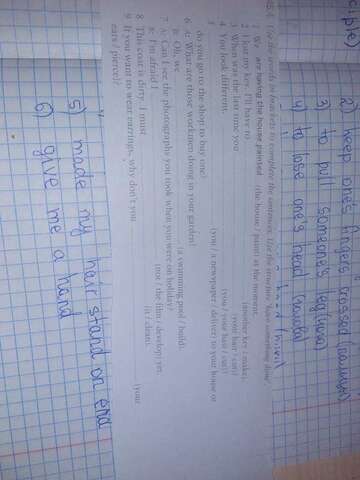 ciple)
2) keep one's fingers crossed
3) to pull someone's leg
4) to lose one's head
Use the words in brackets to complete the sentences. Use the structure 'have something done'.
1 We are having the house painted (the house / paint) at the moment.
2 I lost my key. I'll have to (another key / make).
3 When was the last time you (your hair / cut)?
4 You look different. (you / your hair / cut)?
5 (you / a newspaper / deliver) to your house or
do you go to the shop to buy one?
6 A: What are those workmen doing in your garden?
B: Oh, we (a swimming pool / build).
7 A: Can I see the photographs you took when you were on holiday?
B: I'm afraid I (not / the film / develop) yet.
8 This coat is dirty. I must (it / clean).
9 If you want to wear earrings, why don't you (your
ears / pierce)?
5) made my hair stand on end
6) give me a hand